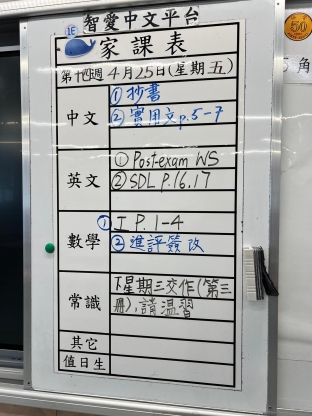 智愛中文平台
1E
家課表
第十四週 4月25日(星期五)
中文
① 抄書
② 實用文p.5-7
英文
① Post-exam WS
② SDL P.16,17
數學
① I P.1-4
② 進評簽改
常識
下星期三交作(第三
冊),請溫習
其它
值日生
50
角